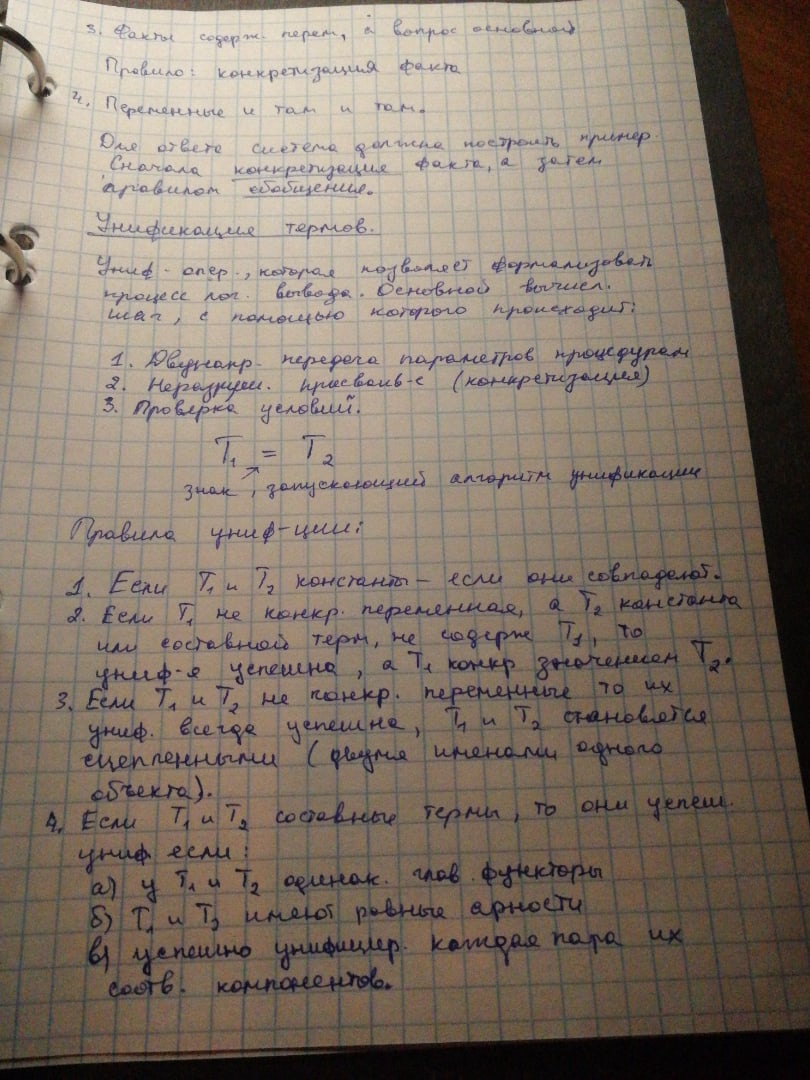 3. Факты содерж. перем, а вопрос основной
Правило: конкретизация факта
4. Переменные и там и там.
Для ответа система должна построить пример.
Сначала конкретизация факта, а затем
правилом обобщения.
Унификация термов.
Униф - опер., которая позволяет формализовать
процесс лог. вывода. Основной вычисл.
шаг, с помощью которого происходит:
1. Двунапр. передача параметров процедурам
2. Неразруш. присваив-е (конкретизация)
3. Проверка условий.
T₁ = T₂
знак, запускающий алгоритм унификации
Правила униф-ции:
1. Если T₁ и T₂ константы – если они совпадают.
2. Если T₁ не конкр. переменная, а T₂ константа
или составной терм, не содерж T₁, то
униф-я успешна, а T₁ конкр значением T₂.
3. Если T₁ и T₂ не конкр. переменные то их
униф. всегда успешна, T₁ и T₂ становятся
сцепленными (двумя именами одного
объекта).
4. Если T₁ и T₂ составные термы, то они успеш.
униф если:
а) у T₁ и T₂ одинак. глав. функторы
б) T₁ и T₂ имеют равные арности
в) успешно унифицир. каждая пара их
соотв. компонентов.